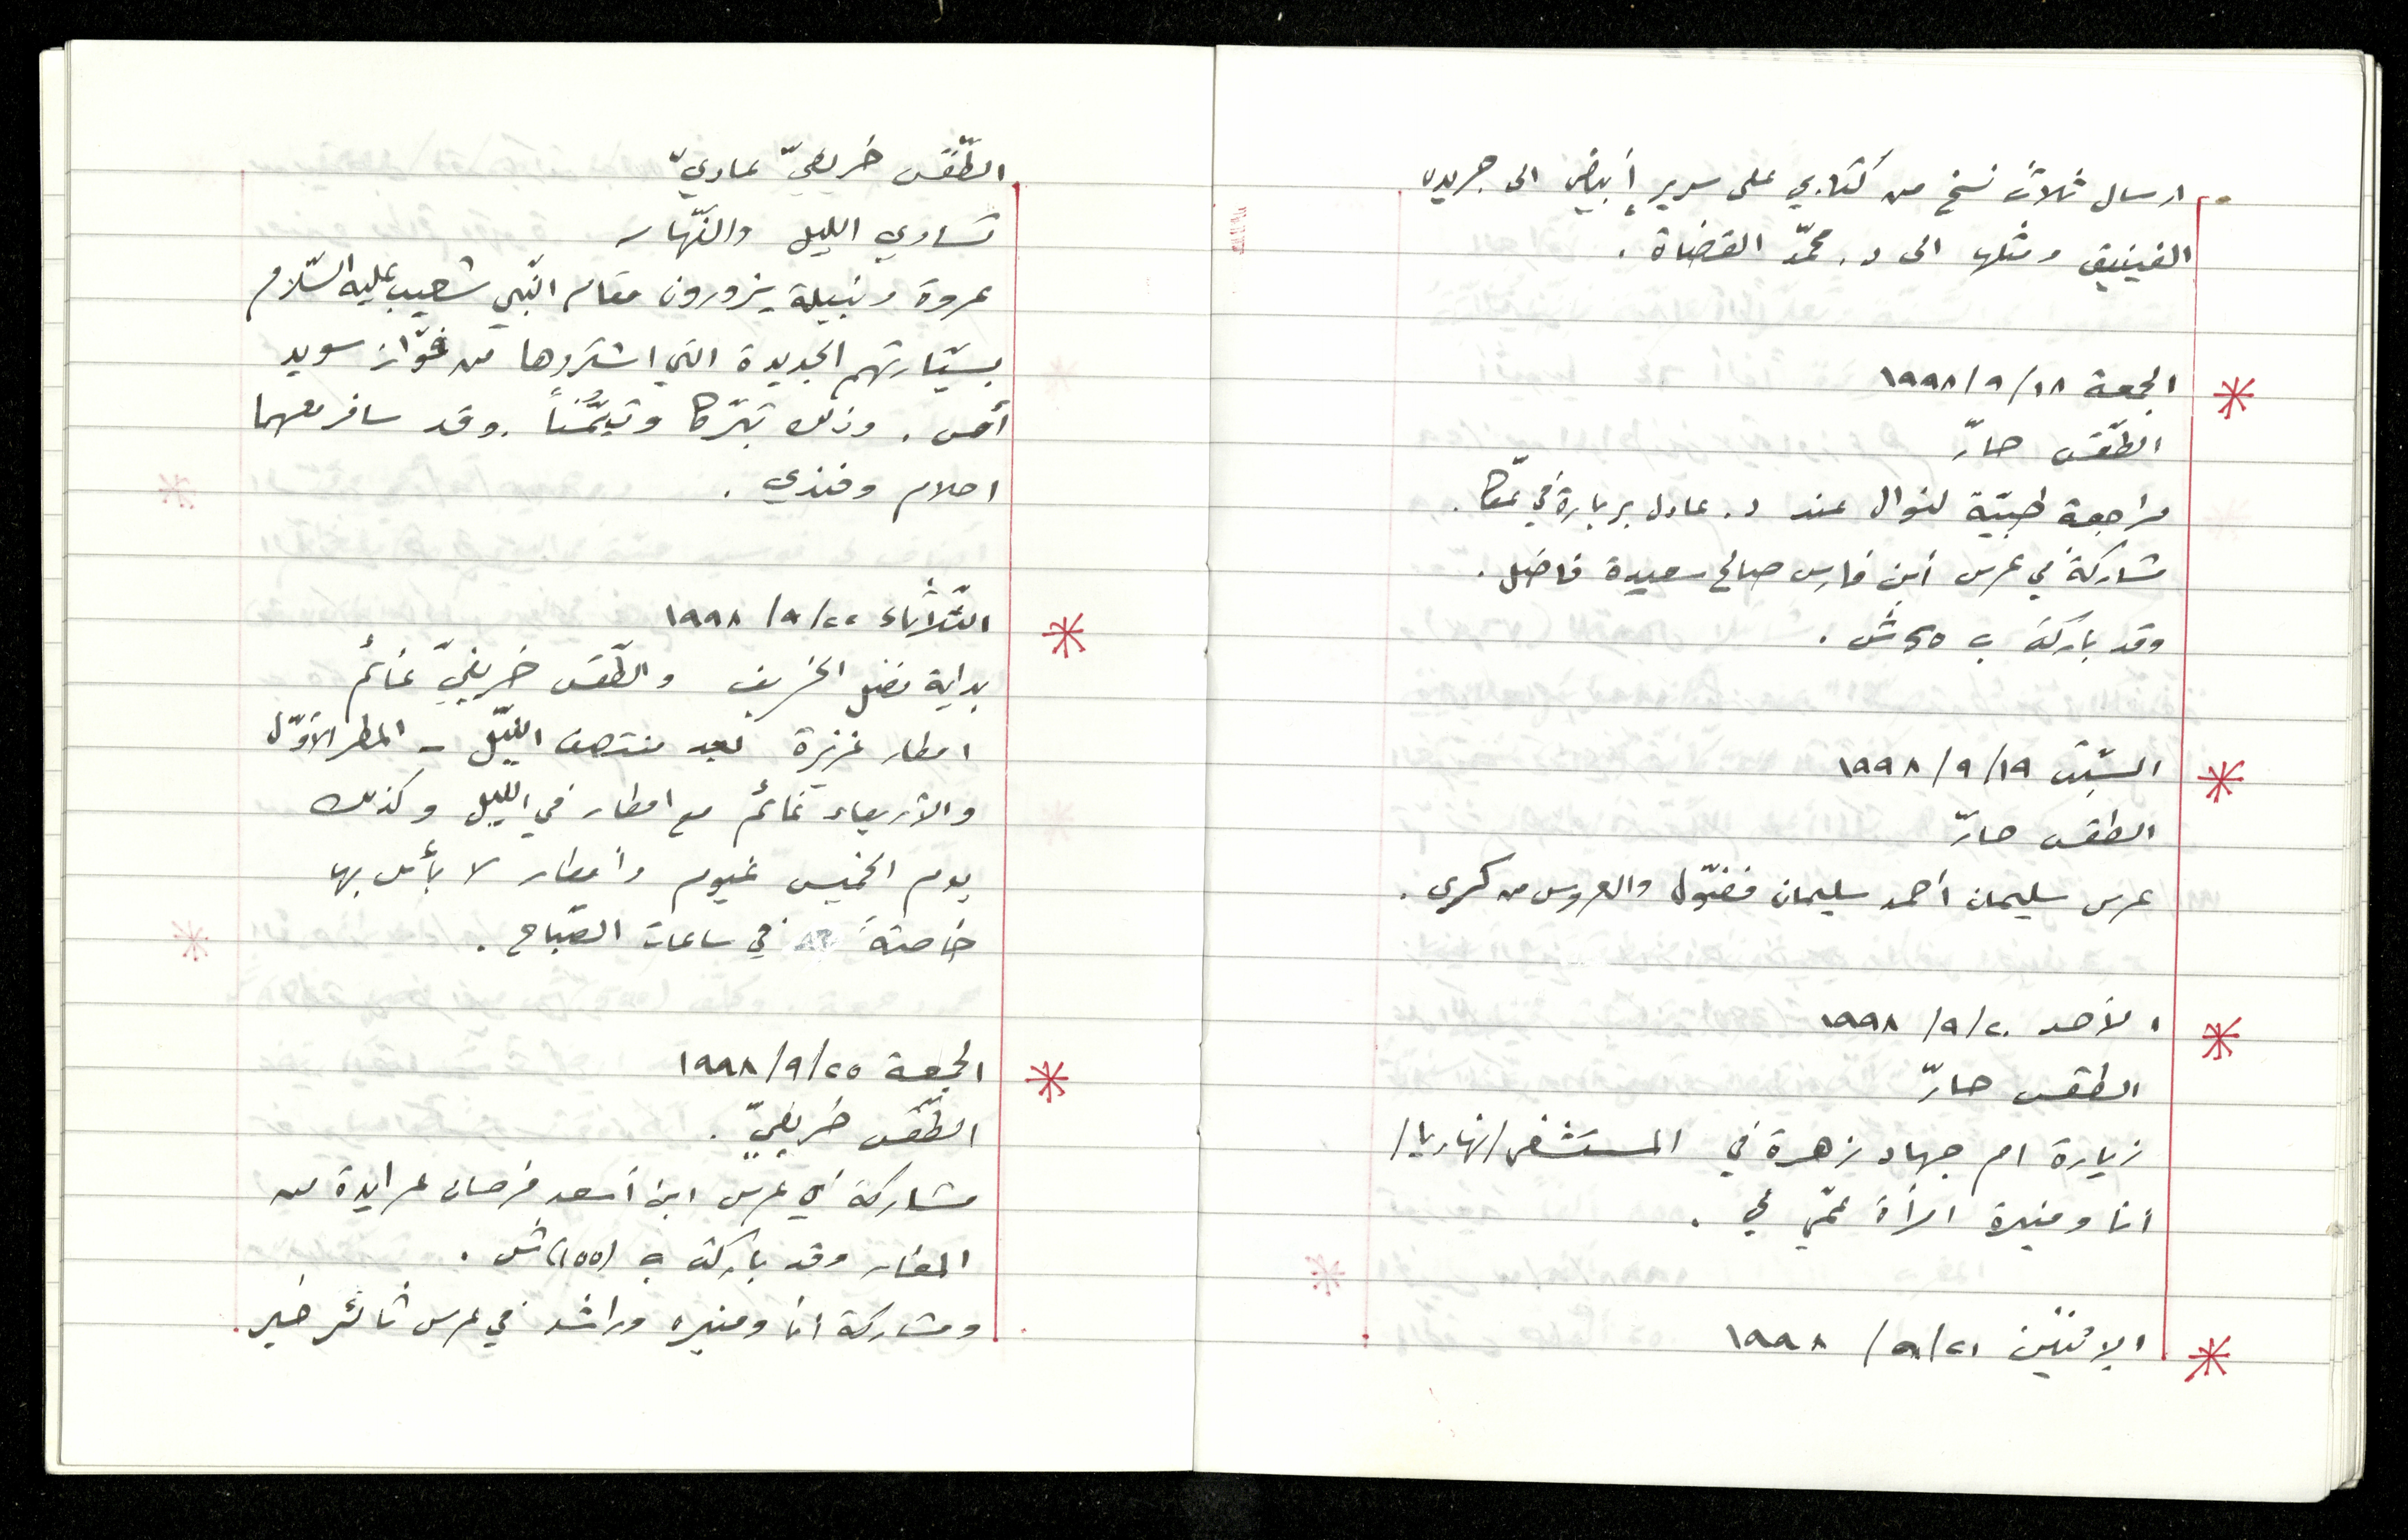 ارسال ثلاث نسخ من كتابي على سرير أبيض الى جريدة
الفينيق ومثلها الى د. محمّد القضاة .
الجمعة ١٨/٩/١٩٩٨
الطّقس حارّ
مراجعة طبيّة لنوال عند د. عادل بربارة في عكّا .
مشاركة في عرس أبن فارس صالح سعيدة فاضل .
وقد باركت ب ٢٥٠ ش .
السّبت ١٩/٩/١٩٩٨
الطقس حارّ
عرس سليمان أحمد سليمان فضّول والعروس من كسرى .
الأحد ٢٠/٩/١٩٩٨
الطقس حارّ
زيارة ام جهاد زهرة في المستشفى/نهاريا/
أنا ومنيرة امرأة عمّي لي .
الإثنين ٢١/٩/١٩٩٨
الطّقس خريفيّ عاديّ
تساوي الليل والنّهار
عروة ونبيلة يزورون مقام النّبي شعيب عليه السّلام
بسيّارتهم الجديدة التي اشتروها من فوّاز سويد
أمس . وذلك تبرّكا وتيمُّناً . وقد سافر معهما
احلام وفندي .
الثّلاثاء ٢٢/٩/١٩٩٨
بداية فصل الخريف والطّقس خريفيّ غائم
امطار غزيرة بعد منتصف اللّيل - المطر الأوّل
والأربعاء غائم مع امطار في الليل وكذلك
يوم الخميس غيوم وأمطار لا بأس بها
خاصةً في ساعات الصّباح .
الجمعة ٢٥/٩/١٩٩٨
الطّقس خريفيّ .
مشاركة في عرس ابن أسعد فرحان عرايدة من
المغار وقد باركت ب (١٥٥) ش .
ومشاركة انا ومنيره وراشد في عرس ثائر خير